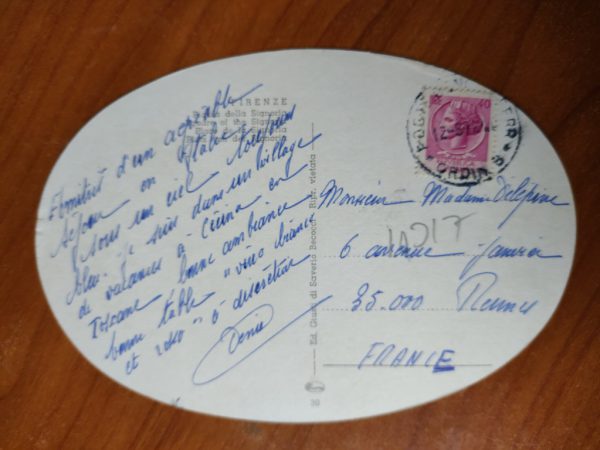 FIRENZE
della Signoria
of the
d'un agréable
séjour en Italie
sous un ciel toujours
bleu. Je suis dans un village
de vacances à Cecina en
Toscane, bonne ambiance,
bonne table "vino bianco
et roso" à discrétion
Denis
Ed. Giusti di Saverio Becocci - Ripr. vietata
30
40
ORDIN
Monsieur Madame Delépine
6 avenue Janvier
35.000 Rennes
FRANCE